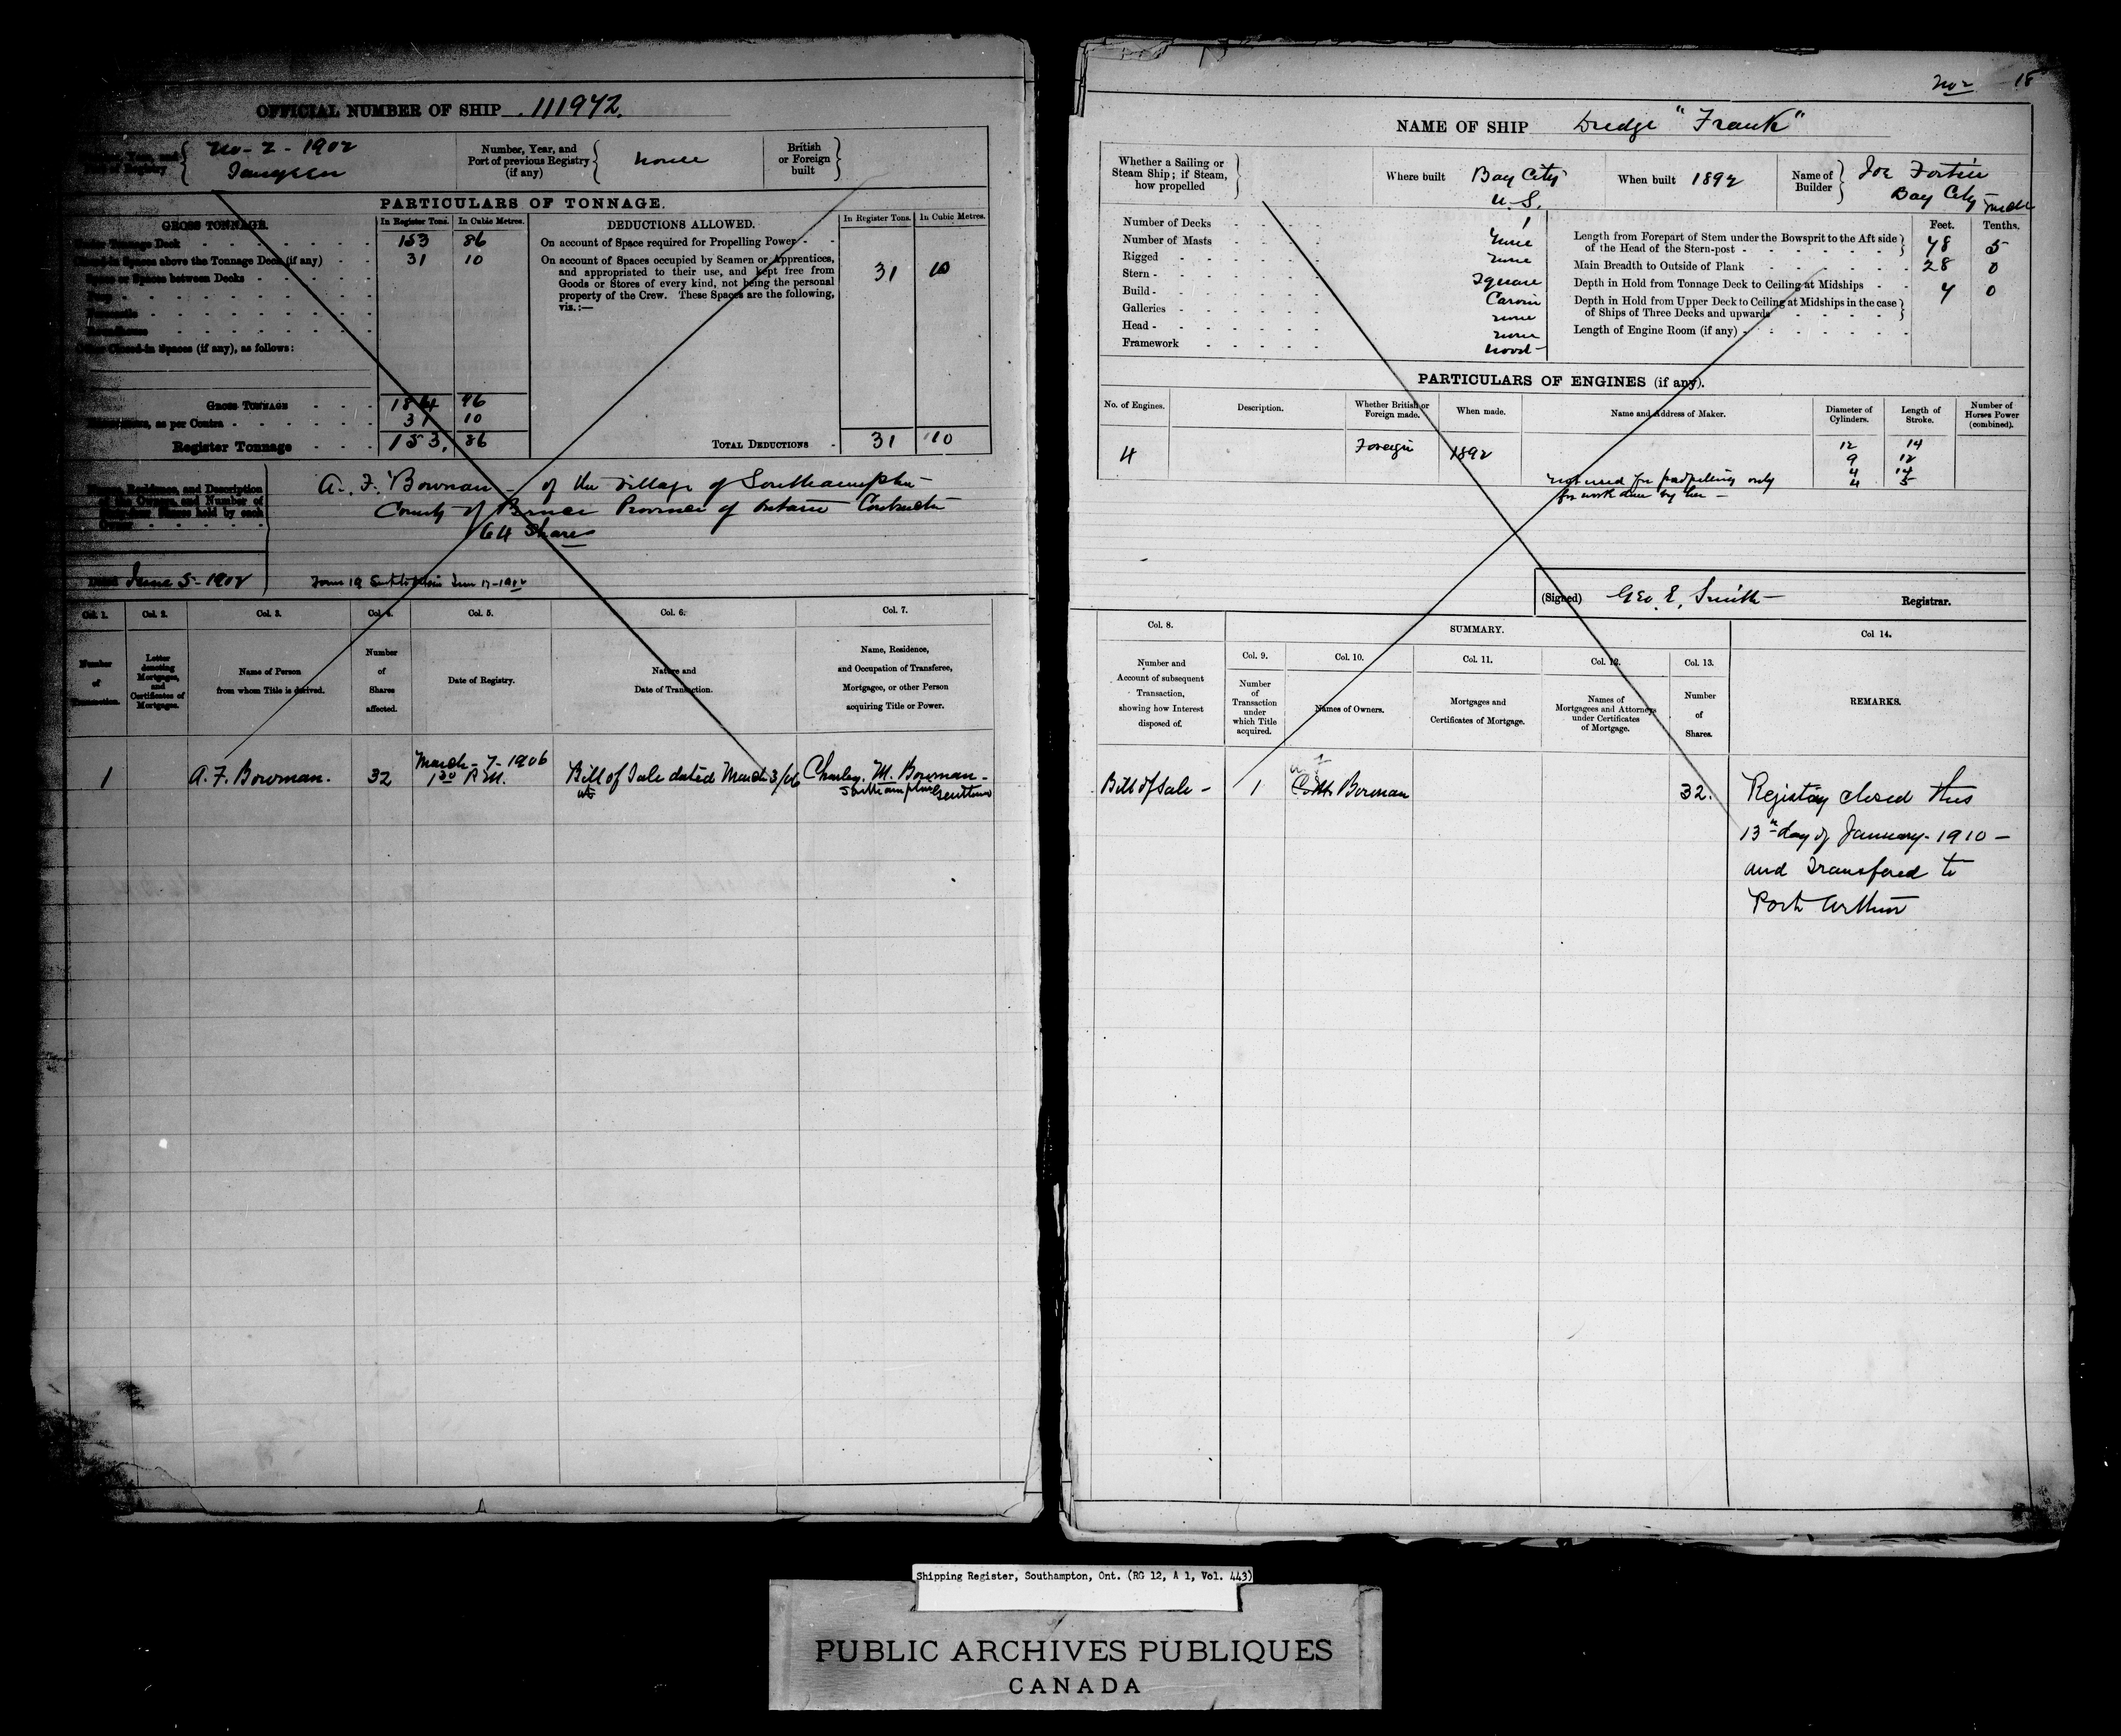 OFFICIAL NUMBER OF SHIP 111942.
No - 2 - 1902
Saugeen
Number, Year, and
Port of previous Registry
(if any)
none
British
or Foreign
built
PARTICULARS OF TONNAGE.
GROSS TONNAGE.
In Register Tons.
In Cubic Metres.
DEDUCTIONS ALLOWED.
In Register Tons.
In Cubic Metres.
Under Tonnage Deck 153 86
Closed-in Spaces above the Tonnage Deck (if any) 31 10
Space or Spaces between Decks
Other Closed-in Spaces (if any), as follows:
On account of Space required for Propelling Power
On account of Spaces occupied by Seamen or Apprentices,
and appropriated to their use, and kept free from
Goods or Stores of every kind, not being the personal
property of the Crew. These Spaces are the following,
viz.:—
31 10
GROSS TONNAGE 184 96
Deductions, as per Contra 31 10
Register Tonnage 153. 86
TOTAL DEDUCTIONS 31 10
Names, Residence, and Description
of the Owners, and Number of
A. F. Bowman - of the Village of Southampton
County of Bruce Province of Ontario Contractor
64 Shares
Dated June 5 - 1902
Col. 1. Col. 2. Col. 3. Col. 4. Col. 5. Col. 6. Col. 7.
Number
of
Transaction.
Letter
denoting
Mortgages,
and
Certificates of
Mortgages.
Name of Person
from whom Title is derived.
Number
of
Shares
affected.
Date of Registry.
Nature and
Date of Transaction.
Name, Residence,
and Occupation of Transferee,
Mortgagee, or other Person
acquiring Title or Power.
1
A. F. Bowman.
32
March - 7 - 1906
1 30 P.M.
Bill of Sale dated March 3/06
Charley. M. Bowman -
Southampton Gentleman
No 2 18
NAME OF SHIP Dredge "Frank"
Whether a Sailing or
Steam Ship; if Steam,
how propelled
Where built Bay City
U. S.
When built 1892
Name of
Builder
Joe Fortin
Bay City Mich
Number of Decks 1
Number of Masts none
Rigged none
Stern Square
Build Carvin
Galleries none
Head none
Framework Wood
Feet. Tenths.
Length from Forepart of Stem under the Bowsprit to the Aft side
of the Head of the Stern-post 78 5
Main Breadth to Outside of Plank 28 0
Depth in Hold from Tonnage Deck to Ceiling at Midships 7 0
Depth in Hold from Upper Deck to Ceiling at Midships in the case
of Ships of Three Decks and upwards
Length of Engine Room (if any)
PARTICULARS OF ENGINES (if any).
No. of Engines.
Description.
Whether British or
Foreign made.
When made.
Name and Address of Maker.
Diameter of
Cylinders.
Length of
Stroke.
Number of
Horses Power
(combined).
4
Foreign
1892
12 14
9 12
4 14
4 5
not used for propelling only
for work done by her -
(Signed) Geo. E. Smith Registrar.
Col. 8.
SUMMARY.
Col 14.
Col. 9. Col. 10. Col. 11. Col. 12. Col. 13.
Number and
Account of subsequent
Transaction,
showing how Interest
disposed of.
Number
of
Transaction
under
which Title
acquired.
Names of Owners.
Mortgages and
Certificates of Mortgage.
Names of
Mortgagees and Attorneys
under Certificates
of Mortgage.
Number
of
Shares.
REMARKS.
Bill of Sale - 1 Bowman 32.
Registry closed this
13th day of January - 1910 -
and Transfered to
Port Arthur
Shipping Register, Southampton, Ont. (RG 12, A 1, Vol. 443)
PUBLIC ARCHIVES PUBLIQUES
CANADA